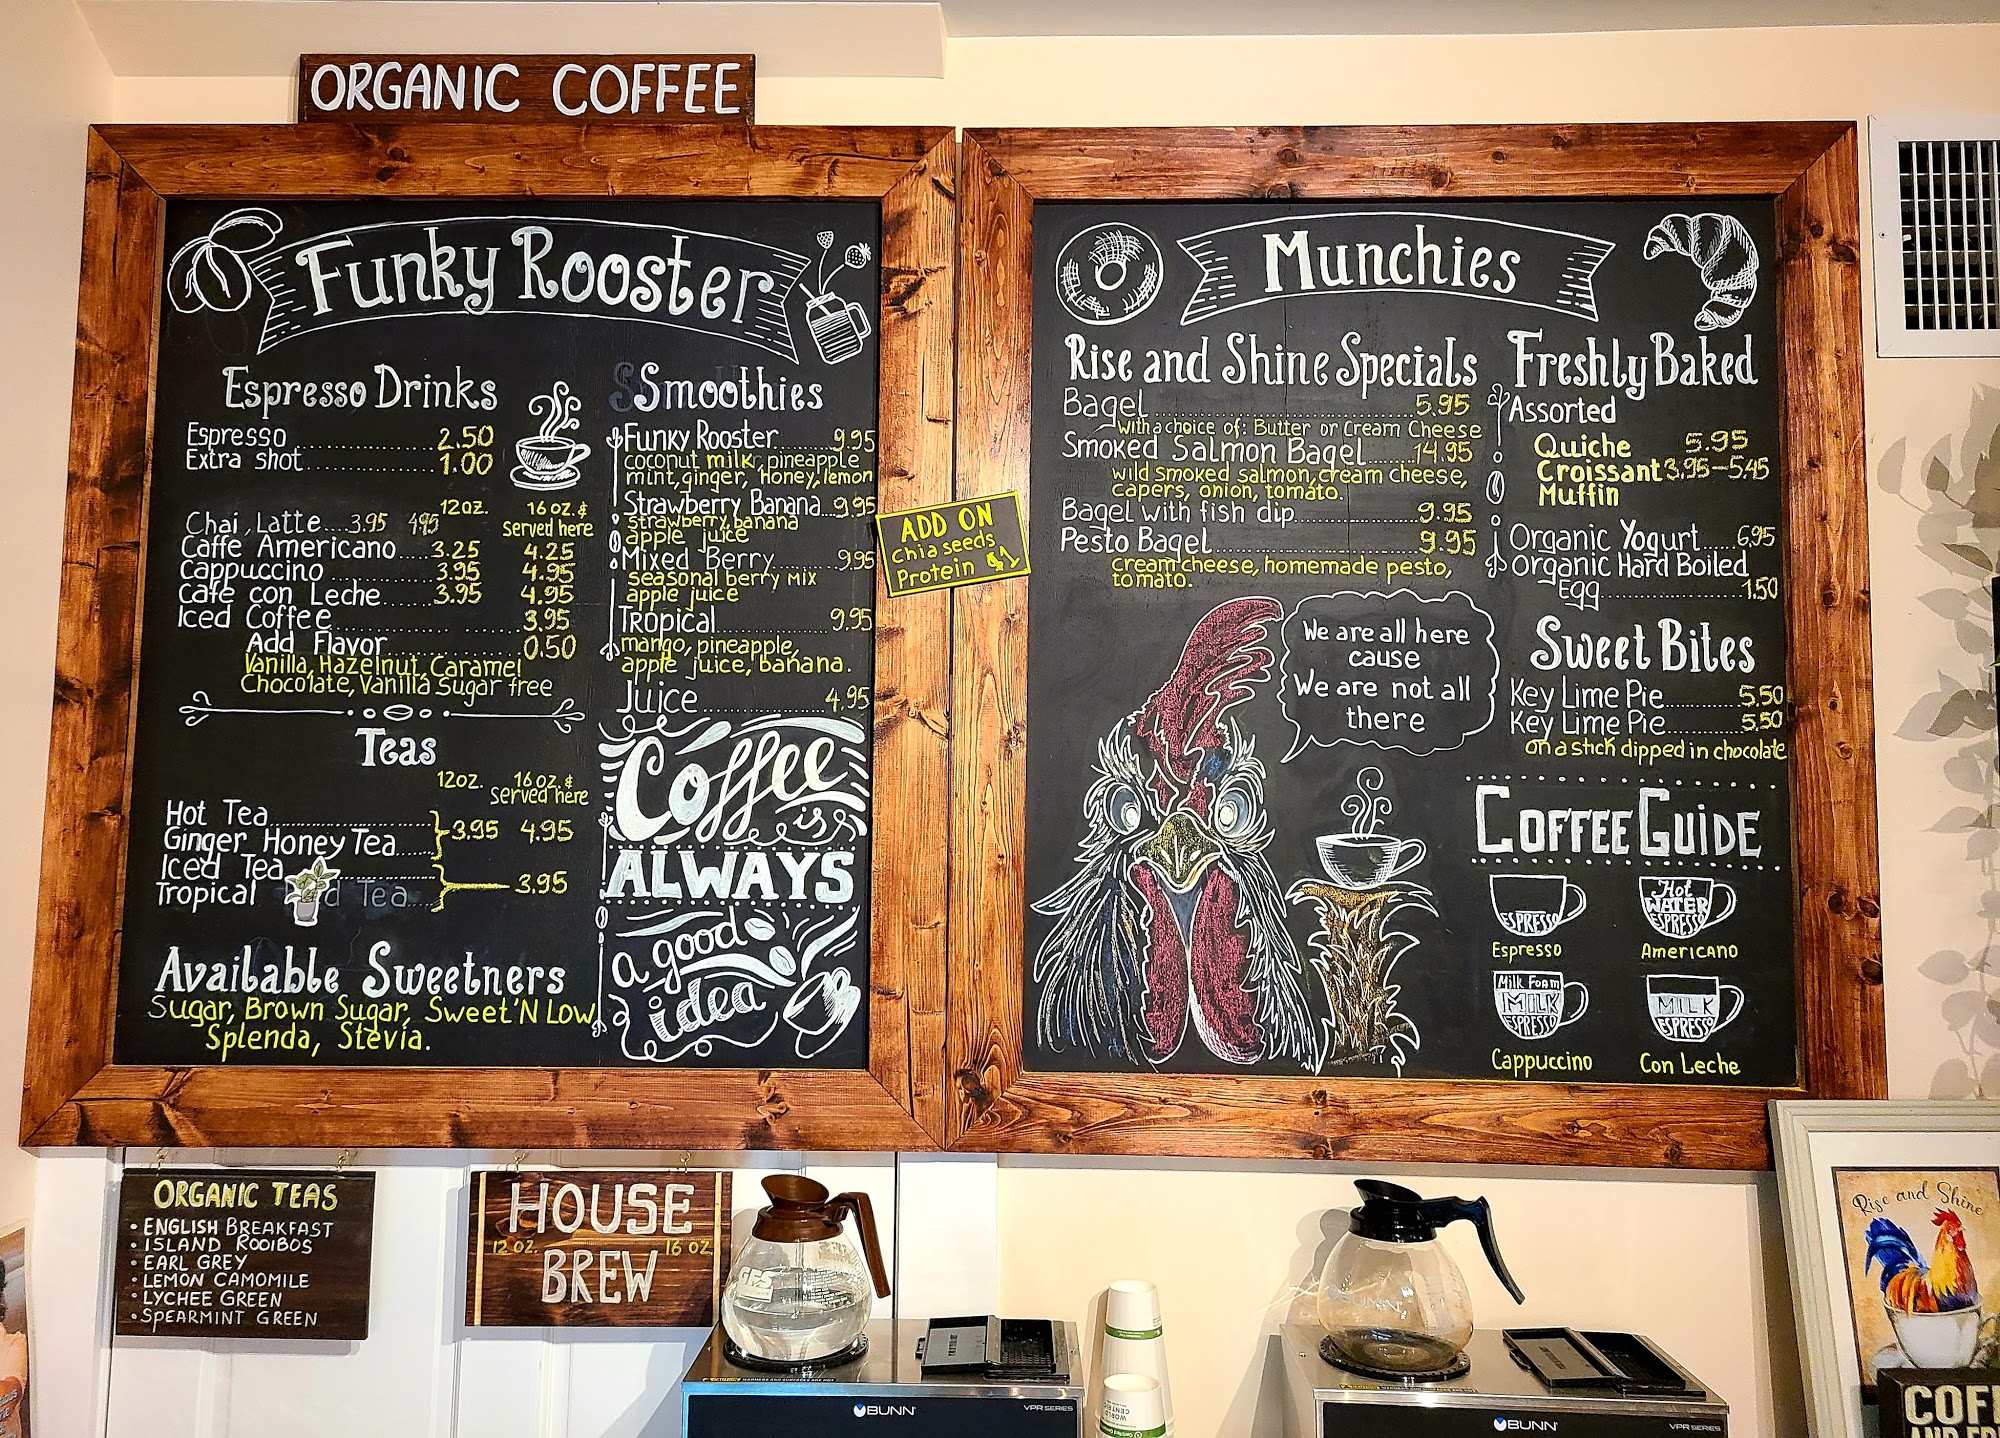 ORGANIC COFFEE
Funky Rooster
Espresso Drinks
Espresso 2.50
Extra shot 1.00
12oz. 16oz. &
served here
Chai Latte 3.95 4.95
Caffe Americano 3.25 4.25
Cappuccino 3.95 4.95
Cafe con Leche 3.95 4.95
Iced Coffee 3.95
Add Flavor 0.50
Vanilla, Hazelnut, Caramel
Chocolate, Vanilla Sugar free
Teas
12oz. 16oz. &
served here
Hot Tea
Ginger Honey Tea 3.95 4.95
Iced Tea
Tropical Tea 3.95
Available Sweetners
Sugar, Brown Sugar, Sweet'N Low
Splenda, Stevia.
Smoothies
Funky Rooster 9.95
coconut milk, pineapple
mint, ginger, honey, lemon
Strawberry Banana 9.95
strawberry, banana
apple juice
Mixed Berry 9.95
seasonal berry mix
apple juice
Tropical 9.95
mango, pineapple,
apple juice, banana.
Juice 4.95
Coffee
is
ALWAYS
a good
idea
ADD ON
Chia seeds
Protein $1
Munchies
Rise and Shine Specials
Bagel 5.95
with a choice of: Butter or Cream Cheese
Smoked Salmon Bagel 14.95
wild smoked salmon, cream cheese,
capers, onion, tomato.
Bagel with fish dip 9.95
Pesto Bagel 9.95
cream cheese, homemade pesto,
tomato.
We are all here
cause
We are not all
there
Freshly Baked
Assorted
Quiche 5.95
Croissant 3.95-5.45
Muffin
Organic Yogurt 6.95
Organic Hard Boiled
Egg 1.50
Sweet Bites
Key Lime Pie 5.50
Key Lime Pie 5.50
on a stick dipped in chocolate
COFFEE GUIDE
ESPRESSO
Espresso
Hot
WATER
ESPRESSO
Americano
Milk Foam
MILK
ESPRESSO
Cappuccino
MILK
ESPRESSO
Con Leche
ORGANIC TEAS
• ENGLISH BREAKFAST
• ISLAND ROOIBOS
• EARL GREY
• LEMON CAMOMILE
• LYCHEE GREEN
• SPEARMINT GREEN
HOUSE
12 OZ. 16 OZ.
BREW
GFS
BUNN
VPR SERIES
BUNN
BUNN
VPR SERIES
WORLD
CENTRIC
Rise and Shine
COF